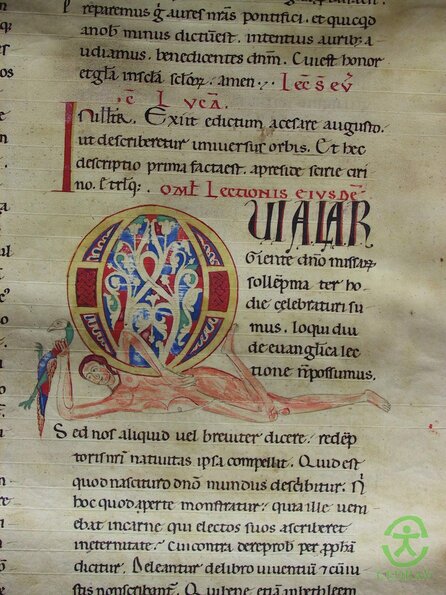 reparemus & aures nr̄as pontifici. et quicqd
anob minus dictū est. intentius auribꝫ a
udiamus. benedicentes dn̄m. Cui est honor
et gl̄a in scl̄a sclōꝝ. amen
Lec̄ S ev̄
Lvcā.
In illō tꝫ. Exiit edictum acesare augusto.
ut describeretur universus orbis. Et hec
descriptio prima facta est. apreside sirie ciri
no. & rlq̄. Omł Lectionis eivsdē
QUIALAR
Giente dn̄o missaꝝ
sollēpnia ter ho
die celebraturi su
mus. loqui diu
de euangelica lec
tione n̄ possumus.
Sed nos aliquid uel breuiter dicere. redēp
toris nr̄i natiuitas ipsa compellit. Quid est
quod nascituro dn̄o mundus describitur. N̄
hoc quod aperte monstratur. quia ille veni
ebat in carne qui electos suos ascriberet
in eternitate. Cui contra de reprobis per ꝓphām
dicitur. Deleantur de libro uiuentiū & cū ius
tis non scribant. Qui bene etiam in bethleem